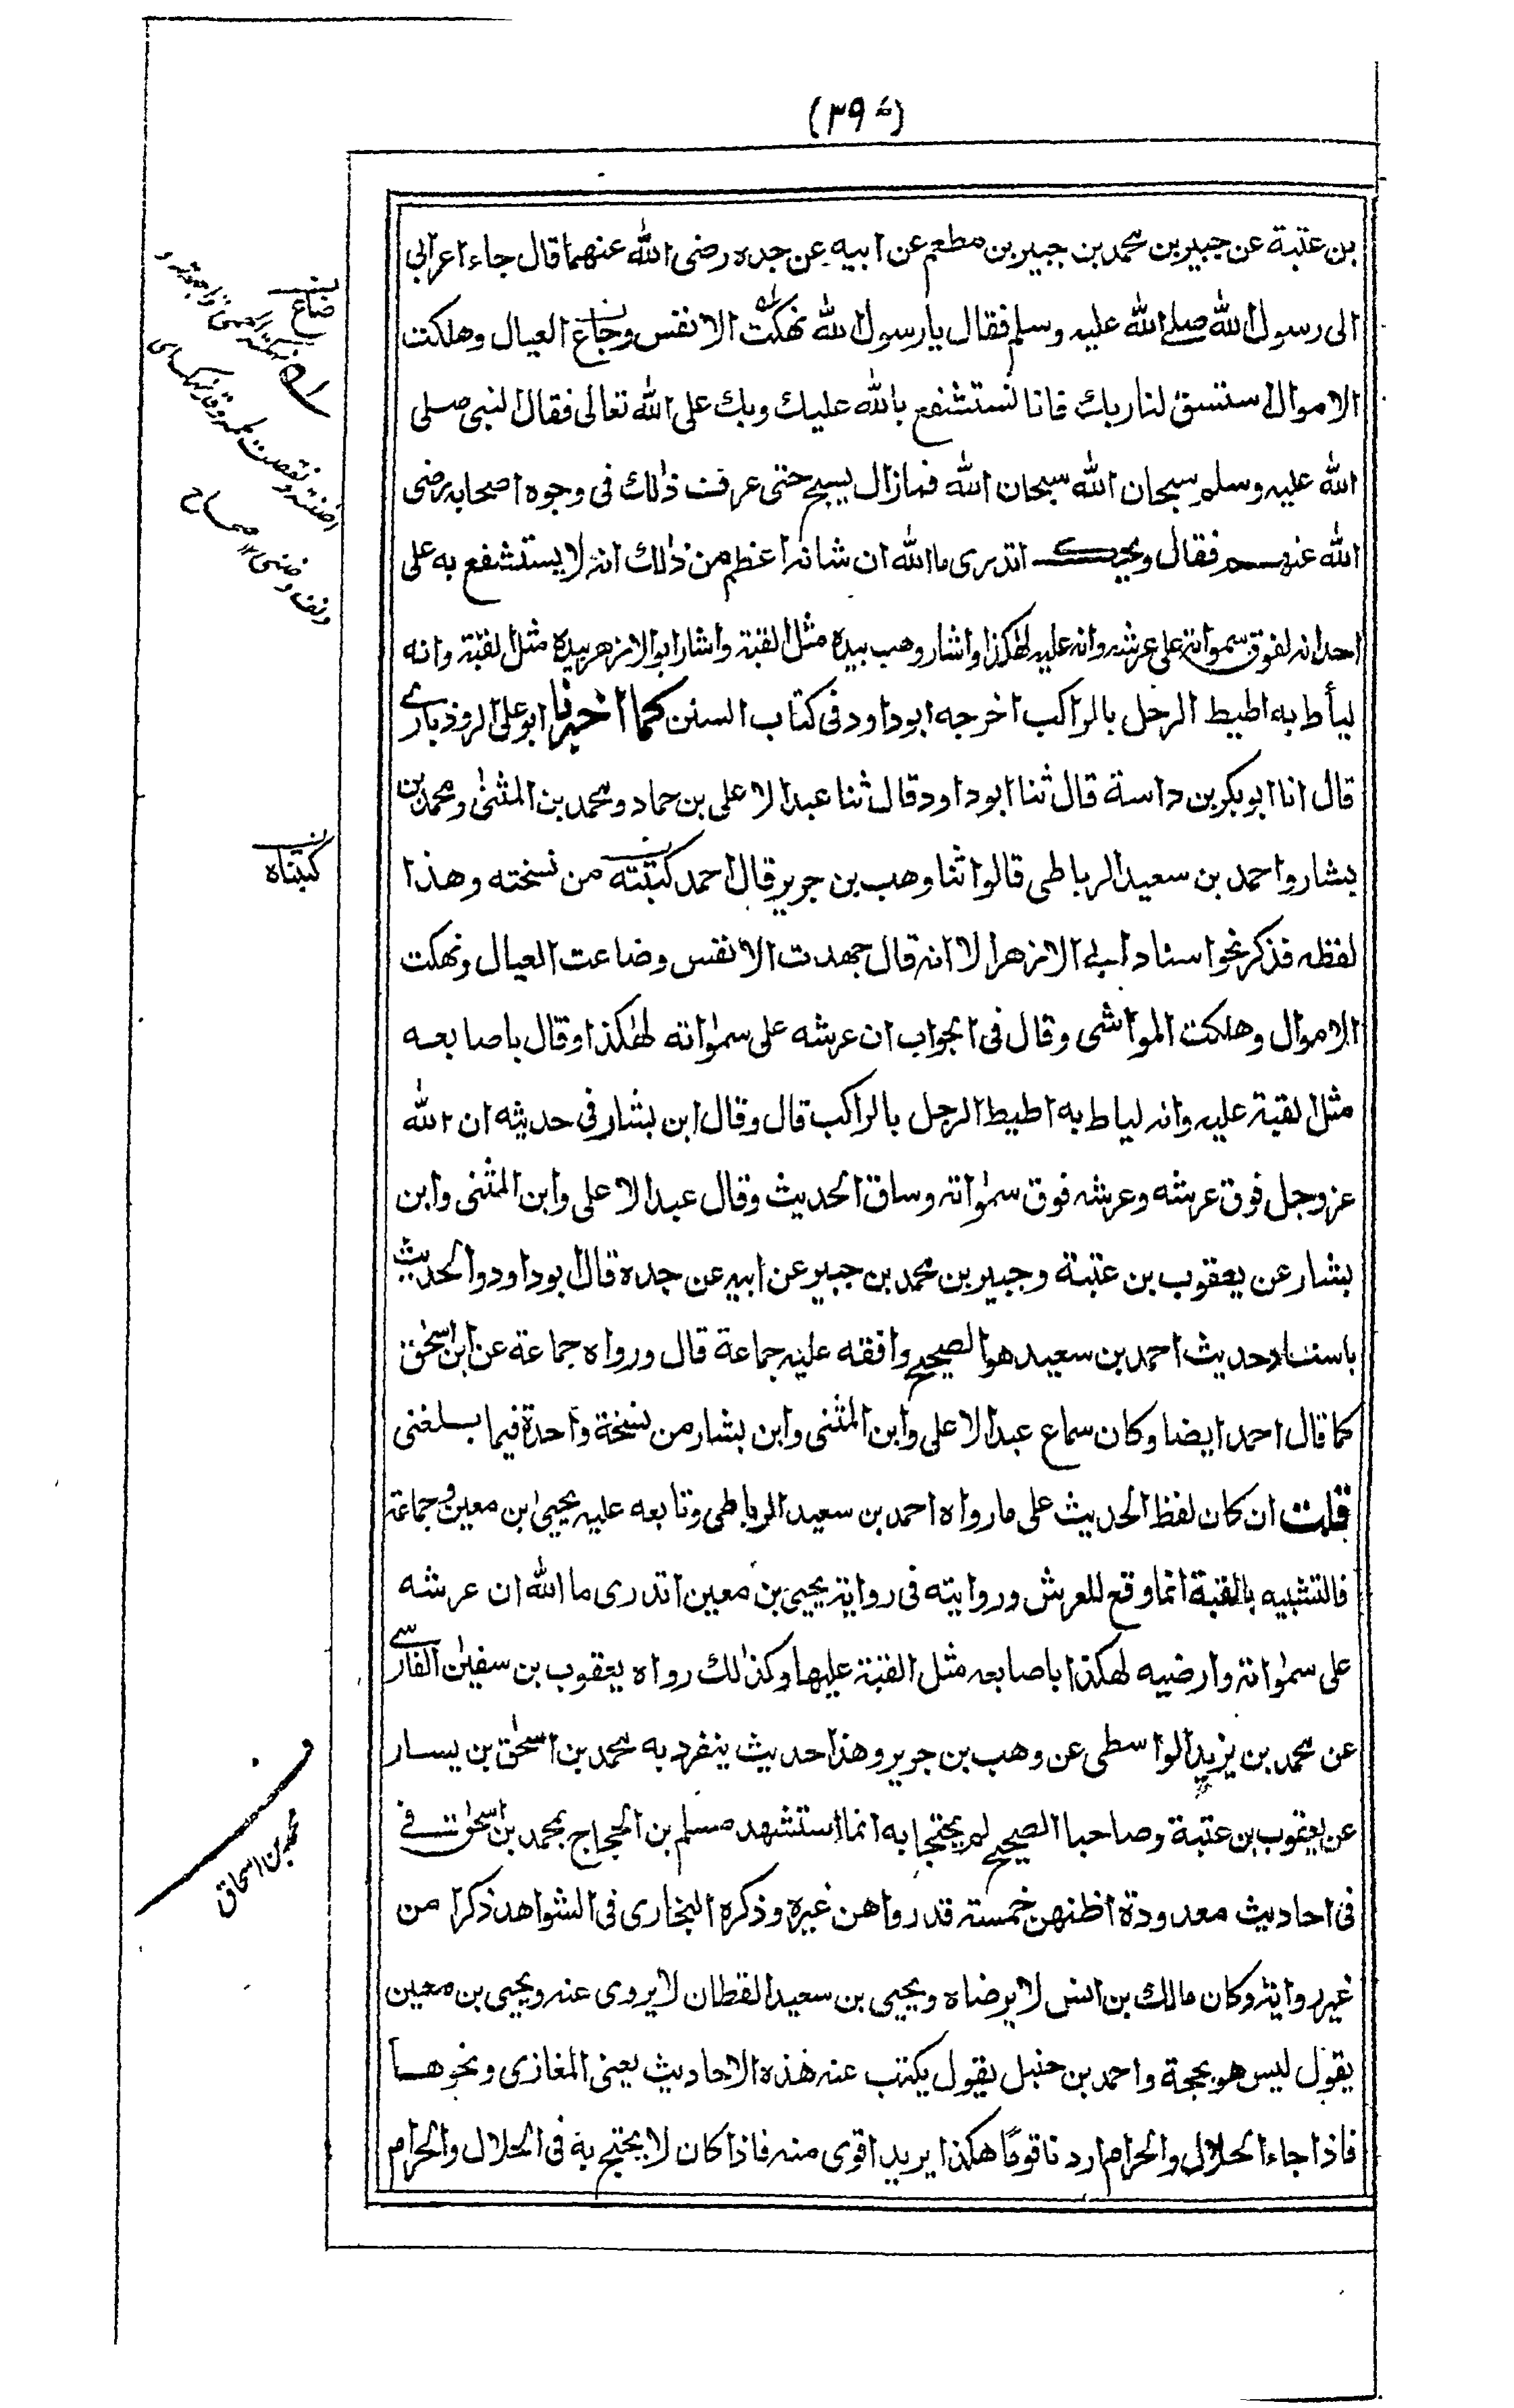 بن عتبة عن جبير بن محمد بن جبير بن مطعم عن ابيه عن جده رضى الله عنهما قال جاء اعرابى
الى رسول الله صلے الله عليه وسلم فقال يا رسول الله نهكت الانفس وجاع العيال وهلكت
الاموال استسق لنا ربك فانا نستشفع بالله عليك وبك على الله تعالى فقال النبى صلى
الله عليه وسلم سبحان الله سبحان الله فمازال يسبح حتى عرفت ذلك فى وجوه اصحابه رضى
الله عنهم فقال ويحك اتدرى ما الله ان شانه اعظم من ذلك انه لا يستشفع به على
احد انه لفوق سمواته على عرشه وانه عليه لهكذا واشار وهب بيده مثل القبة واشار ابو الازهر بيده مثل القبة وانه
ليأط به اطيط الرحل بالراكب اخرجه ابوداود فى كتاب السنن كما اخبرنا ابو على الروذبارے
قال انا ابوبكر بن داسة قال ثنا ابوداود قال ثنا عبد الاعلى بن حماد ومحمد بن المثنى ومحمد بن
بشار واحمد بن سعيد الرباطى قالوا ثنا وهب بن جرير قال احمد كتبته من نسخته وهذا
لفظه فذكر نحو اسناد ابى الازهر الا انه قال جهدت الانفس وضاعت العيال ونهكت
الاموال وهلكت المواشى وقال فى الجواب ان عرشه على سمٰواته لهٰكذا وقال باصابعه
مثل القبة عليه وانه لياط به اطيط الرحل بالراكب قال وقال ابن بشار فى حديثه ان الله
عزوجل فوق عرشه وعرشه فوق سمٰواته وساق الحديث وقال عبد الاعلى وابن المثنى وابن
بشار عن يعقوب بن عتبة وجبير بن محمد بن جبير عن ابيه عن جده قال ابوداود والحديث
باسناد حديث احمد بن سعيد هو الصحيح وافقه عليه جماعة قال ورواه جماعة عن ابن اسحٰق
كما قال احمد ايضا وكان سماع عبد الاعلى وابن المثنى وابن بشار من نسخة واحدة فيما بلغنى
قلت ان كان لفظ الحديث على ما رواه احمد بن سعيد الرباطى وتابعه عليه يحيى ابن معين وجماعة
فالتشبيه بالقبة انما وقع للعرش وروايته فى رواية يحيى بن معين اتدرى ما الله ان عرشه
على سمٰواته وارضيه لهكذا باصابعه مثل القبة عليها وكذلك رواه يعقوب بن سفيٰن الفارسے
عن محمد بن يزيد الواسطى عن وهب بن جرير وهذا حديث ينفرد به محمد بن اسحٰق بن يسار
عن يعقوب بن عتبة وصاحبا الصحيح لم يحتجا به انما استشهد مسلم بن الحجاج بمحمد بن اسحٰق فے
فى احاديث معدودة اظنهن خمسته قد رواهن غيره وذكره البخارى فى الشواهد ذكرا من
غير روايته وكان مالك بن انس لا يرضاه ويحيى بن سعيد القطان لا يروى عنه ويحيى بن معين
يقول ليس هو بحجة واحمد بن حنبل يقول يكتب عنه هذه الاحاديث يعنى المغازى ونحوها
فاذا جاء الحلال والحرام اردنا قومًا هكذا يريد اقوى منه فاذا كان لا يحتج به فى الحلال والحرام
ضاع
كتبناه
محمد بن اسحاق